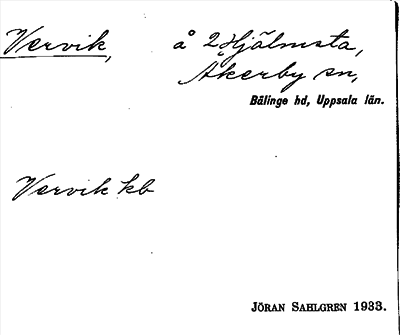 Vervik, å 2 Hjälmsta,
Åkerby sn,
Bälinge hd, Uppsala län.
Vervik kb
JÖRAN SAHLGREN 1933.